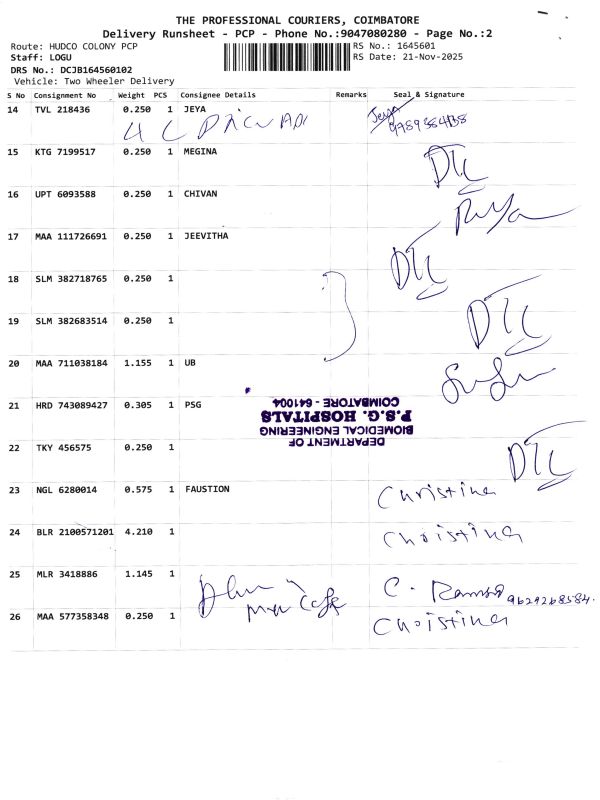 THE PROFESSIONAL COURIERS, COIMBATORE
Delivery Runsheet - PCP - Phone No.:9047080280 - Page No.:2
Route: HUDCO COLONY PCP
Staff: LOGU
DRS No.: DCJB164560102
Vehicle: Two Wheeler Delivery
RS No.: 1645601
RS Date: 21-Nov-2025
S No Consignment No Weight PCS Consignee Details Remarks Seal & Signature
14 TVL 218436 0.250 1 JEYA Jeya
15 KTG 7199517 0.250 1 MEGINA DTC
16 UPT 6093588 0.250 1 CHIVAN
17 MAA 111726691 0.250 1 JEEVITHA DTC
18 SLM 382718765 0.250 1
19 SLM 382683514 0.250 1 DTC
20 MAA 711038184 1.155 1 UB
21 HRD 743089427 0.305 1 PSG
DEPARTMENT OF
BIOMEDICAL ENGINEERING
P.S.G. HOSPITALS
COIMBATORE - 641004
22 TKY 456575 0.250 1 DTC
23 NGL 6280014 0.575 1 FAUSTION Christina
24 BLR 2100571201 4.210 1 Christina
25 MLR 3418886 1.145 1 C. 9629268584.
26 MAA 577358348 0.250 1 Christina